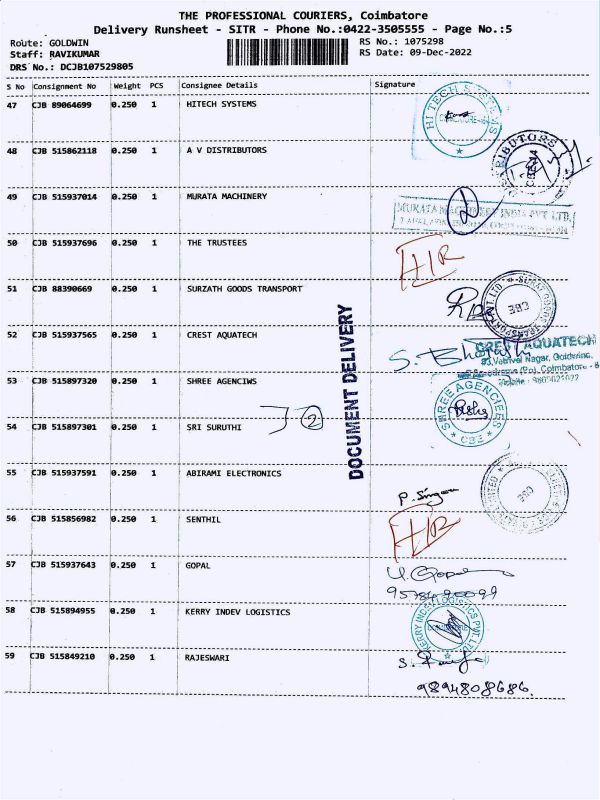 THE PROFESSIONAL COURIERS, Coimbatore
Delivery Runsheet - SITR - Phone No.:0422-3505555 - Page No.:5
Route: GOLDWIN RS No.: 1075298
Staff: RAVIKUMAR RS Date: 09-Dec-2022
DRS No.: DCJB107529805
S No Consignment No Weight PCS Consignee Details Signature
47 CJB 89064699 0.250 1 HITECH SYSTEMS
HI TECH SYSTEMS
48 CJB 515862118 0.250 1 A V DISTRIBUTORS
49 CJB 515937014 0.250 1 MURATA MACHINERY
MURATA MACHINERY INDIA PVT. LTD.
50 CJB 515937696 0.250 1 THE TRUSTEES
51 CJB 88390669 0.250 1 SURZATH GOODS TRANSPORT
CBE
52 CJB 515937565 0.250 1 CREST AQUATECH
CREST AQUATECH
Nagar, Goldwins,
Coimbatore
53 CJB 515897320 0.250 1 SHREE AGENCIWS
SHREE AGENCIEES
CBE
54 CJB 515897301 0.250 1 SRI SURUTHI
2
DOCUMENT DELIVERY
55 CJB 515937591 0.250 1 ABIRAMI ELECTRONICS
CBE
56 CJB 515856982 0.250 1 SENTHIL
57 CJB 515937643 0.250 1 GOPAL
58 CJB 515894955 0.250 1 KERRY INDEV LOGISTICS
KERRY INDEV LOGISTICS PVT. LTD
59 CJB 515849210 0.250 1 RAJESWARI
9894808686.